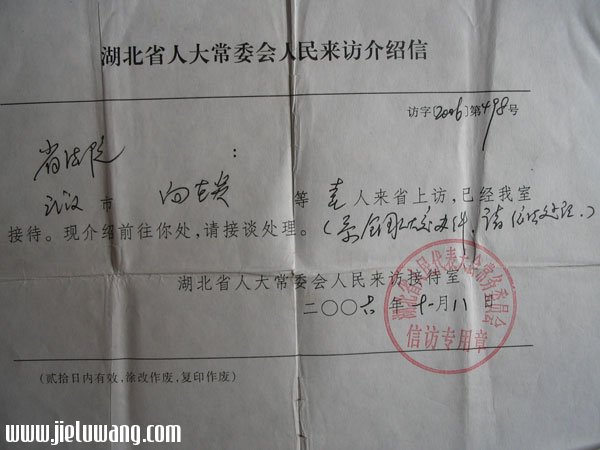 湖北省人大常委会人民来访介绍信
访字[2006]第498号
省法院:
武汉市 等 人来省上访,已经我室
接待。现介绍前往你处,请接谈处理。(系全国人大交办件,请依法处理.)
湖北省人大常委会人民来访接待室
二〇〇六年十一月八日
湖北省人民代表大会常务委员会
信访专用章
(贰拾日内有效,涂改作废,复印作废)
www.jieluwang.com